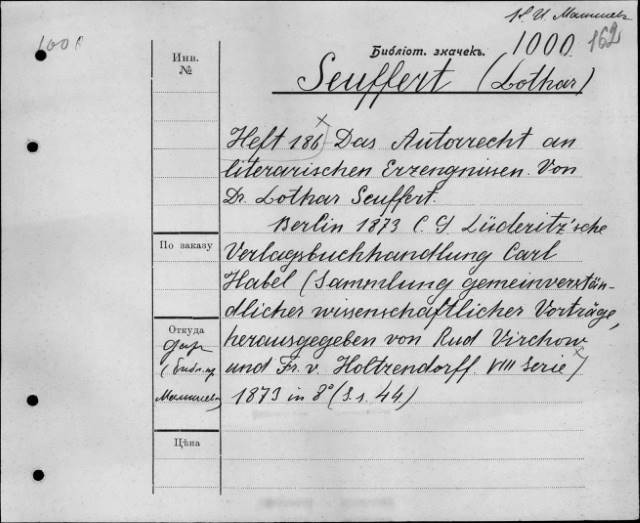 1000
Инв.
№
Библіот. значекъ. 1000. 162
Seuffert (Lothar)
Heft 186 Das Autorrecht an
literarischen Erzengnissen. Von
Dr. Lothar Seuffert.
Berlin 1873 C. G Lüderitz'sche
По заказу
Verlagsbuchhandlung Carl
Habel (Sammlung gemeinverstän-
dlicher wissenschaftlicher Vorträge,
Откуда
дар
herausgegeben von Rud Virchow
und Fr. v. Holtzendorff. VIII Serie)
1873 in 8° (S. 1. 44.)
Цѣна